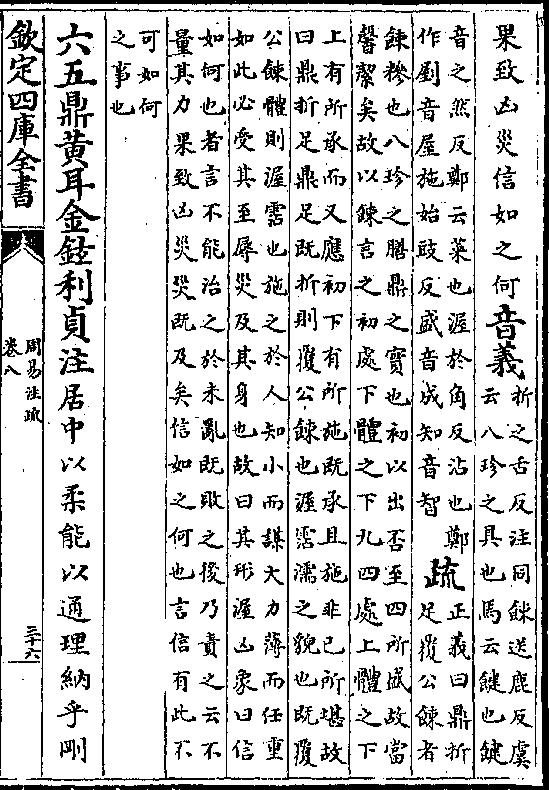 果致凶災信如之何音義折之舌反注同餗送鹿反虞
云八珍之具也馬云𩜾也𩜾
音之然反鄭云菜也渥於角反沾也鄭
作剭音屋施始豉反盛音成知音智
疏正義曰鼎折
足覆公餗者
餗糝也八珍之膳鼎之實也初以出否至四所盛故當
馨潔矣故以餗言之初處下體之下九四處上體之下
上有所承而又應初下有所施既承且施非已所堪故
曰鼎折足鼎足既折則覆公餗也渥霑濡之貌也既覆
公餗體則渥霑也施之於人知小而謀大力薄而任重
如此必受其至辱災及其身也故曰其形渥凶象曰信
如何也者言不能治之於未亂既敗之後乃責之云不
量其力果致凶災災既及矣信如之何也言信有此不
可如何
之事也
六五鼎黃耳金鉉利貞注居中以柔能以通理納乎剛
欽定四庫全書
周易注疏
卷八
三十六